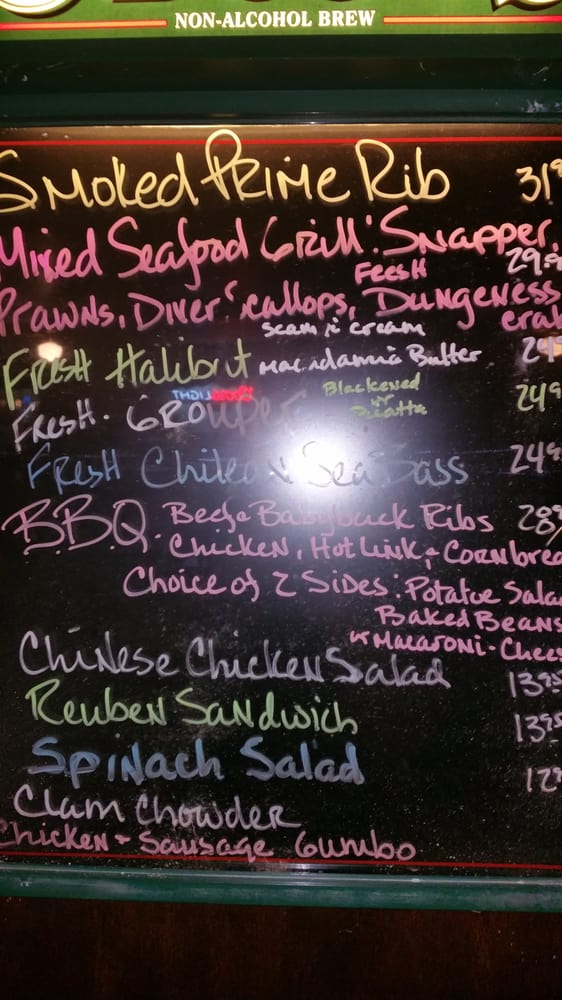 NON-ALCOHOL BREW
Smoked Prime Rib 31
Mixed Seafood Grill: Snapper,
Fresh 29.
Prawns, Diver Scallops, Dungeness
crab
Fresh Halibut Macadamia Butter 24
Fresh. Grouper Blackened 249
or
Picatta
Fresh Chilean Sea Bass 249
B.B.Q. Beef & Babyback Ribs 28
Chicken, Hot Link & Cornbrea
Choice of 2 Sides: Potatoe Sala
Baked Beans
or Macaroni-Chees
Chinese Chicken Salad 1395
Reuben Sandwich 1395
Spinach Salad 12
Clam Chowder
Chicken & Sausage Gumbo